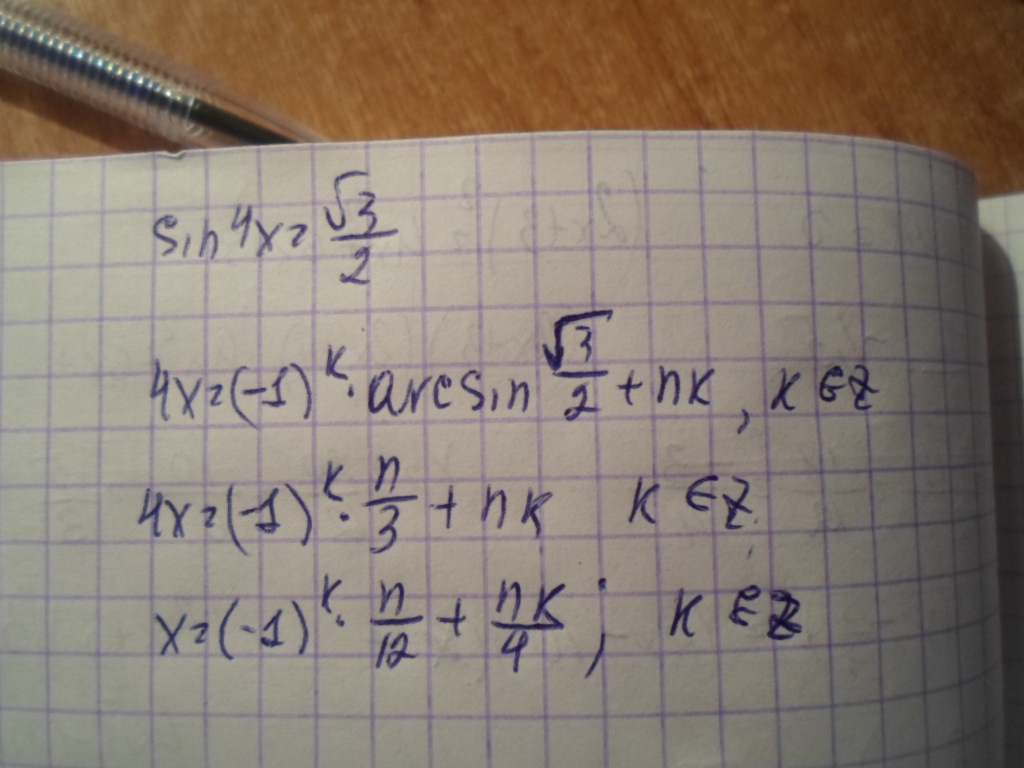 sin 4x = √3/2
4x = (-1)^k · arcsin √3/2 + πk, k ∈ Z
4x = (-1)^k · π/3 + πk k ∈ Z
x = (-1)^k · π/12 + πk/4; k ∈ Z